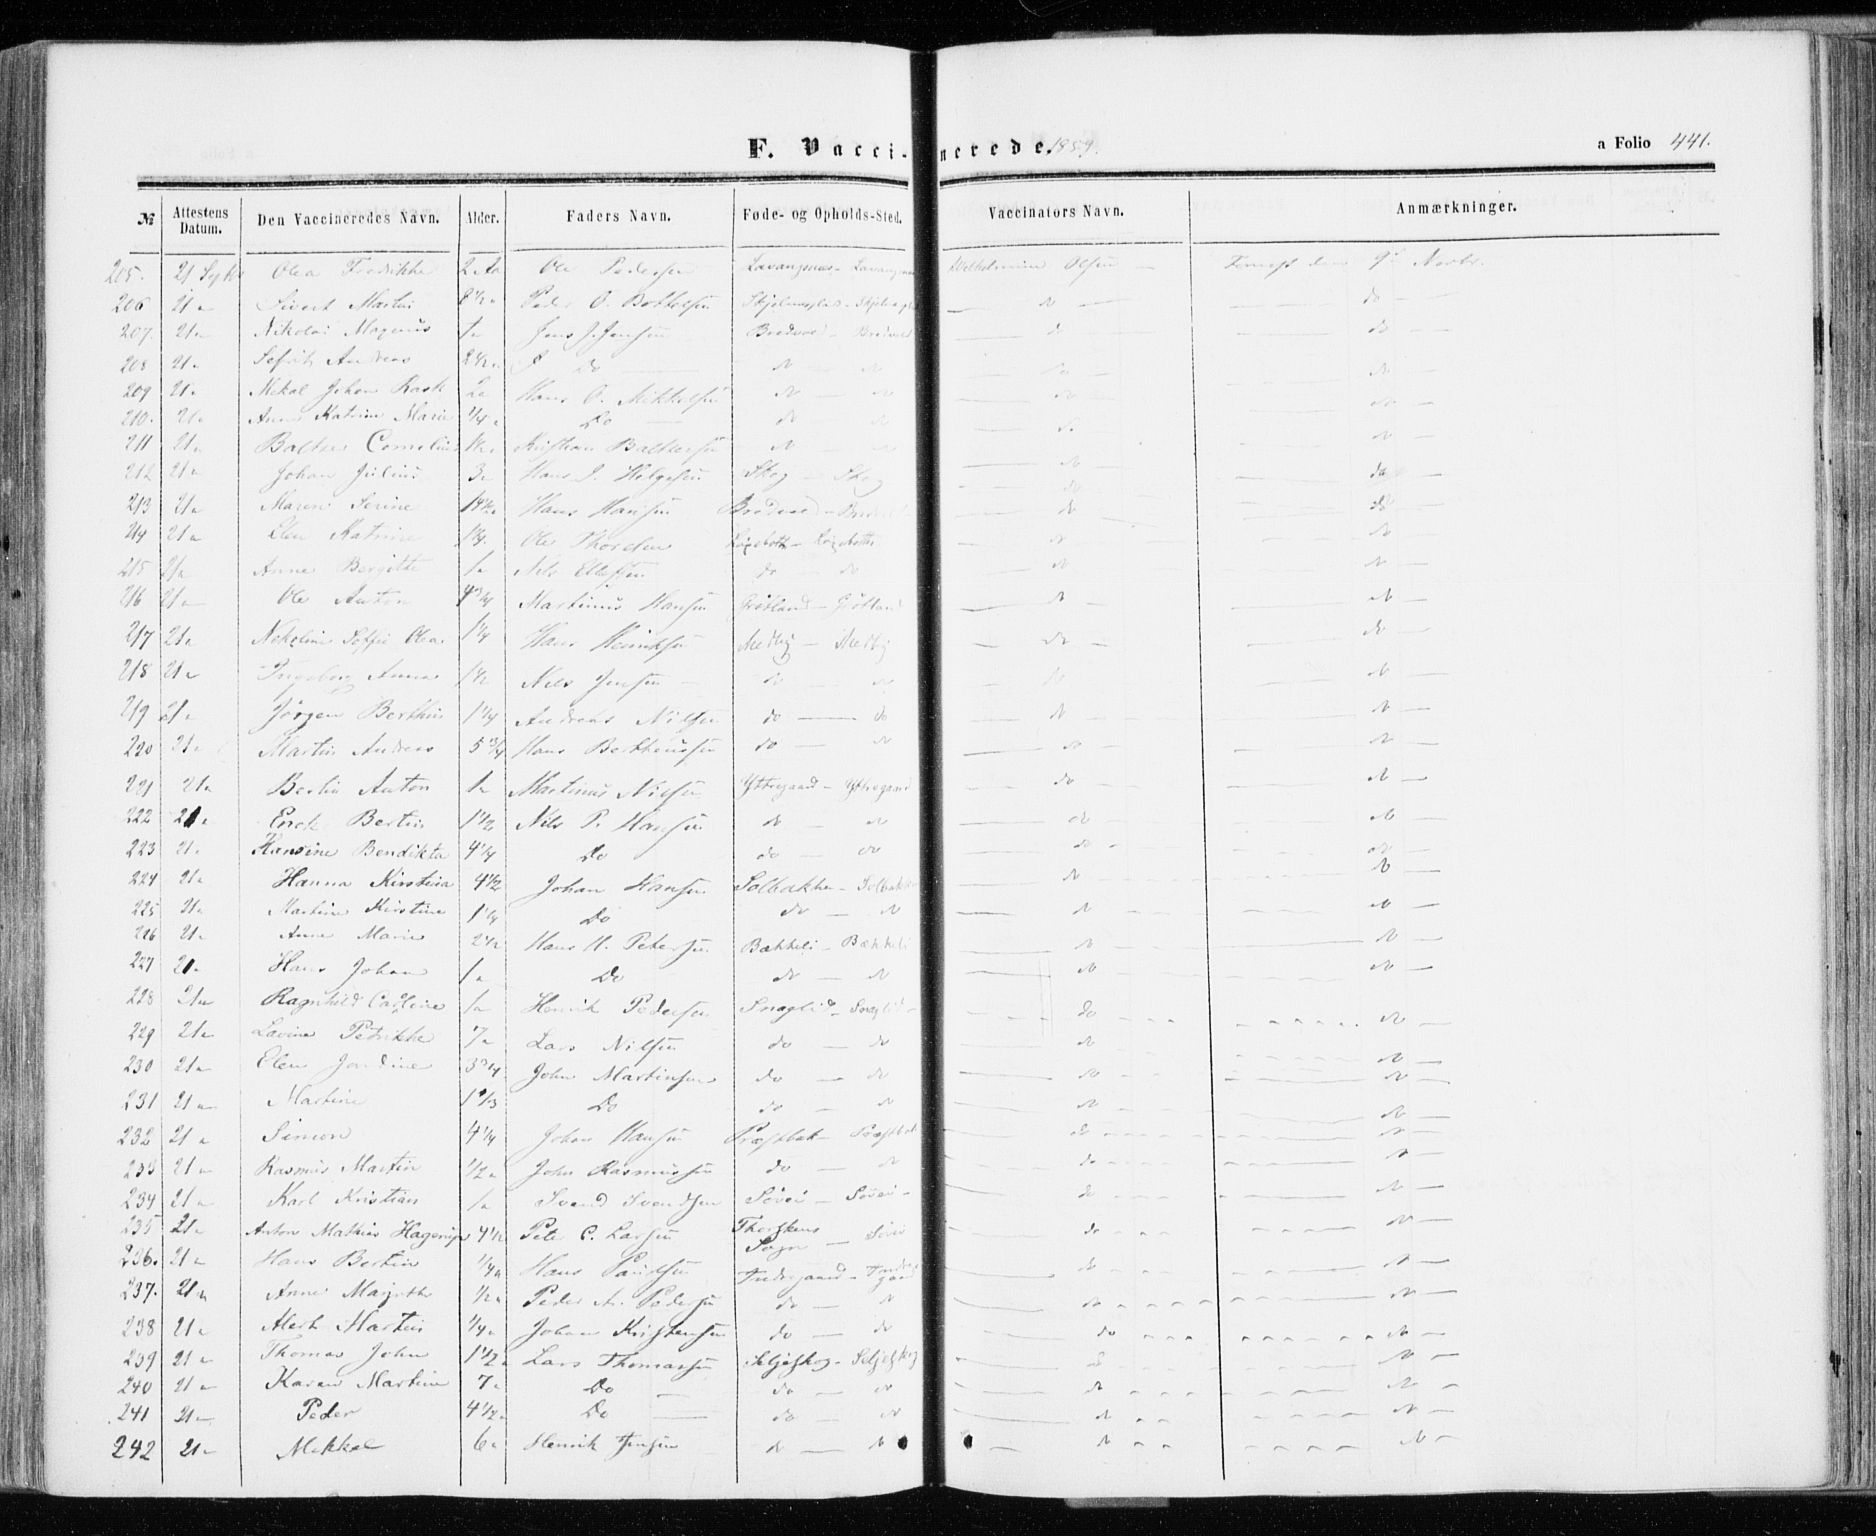 F. Vaccinerede. 1859.
a Folio 441.
№ Attestens Datum. Den Vaccineredes Navn. Alder. Faders Navn. Føde- og Opholds-Sted. Vaccinators Navn. Anmærkninger.
205. 21 Septbr Olea Fredrikke 2 Aa Ole Pedersen Lavangsnæs - Lavangsnæs Olsen —
206 21 " Sivert Martin 8 1/2 " Peder O. do — do —
207. 21 " Nikolai Magnus 1 " Jens J. Jensen Bredvad - Bredvad — do — do —
208 21 " Andreas 2 1/2 " Do — do — do — do — do —
209 21 " Mikal Johan Rask 2 " Hans O. Mikkelsen do — do — do — do —
210. 21 " Anne Katrine Marie 1/4 " Do — do — do — do — do —
211 21 " Baltser Cornelius Kristian Baltsersen do — do — do — do —
212 21 " Johan Julius 3 " Hans J. Helgesen Skog — Skog — do — do —
213 21 " Maren Serine Hans Hansen Bredvad - Bredvad — do — do —
214 21 " Elen Katrine Ole Thorden — do — do
215 21 " Anne Bergitte 1 " Nils Ellefsen do — do — do — do
216 21 " Ole Anton 4 3/4 Martinus Hansen Grøtland - Grøtland — do — do —
217 21 " Nekoline Soffie Olea 1 1/4 Hans Henriksen Medby - Medby — do — do —
218 21 " Ingeborg Anna 1 1/2 Nils Jensen — do — do — do — do —
219 21 " Jørgen Berthin 1 1/4 Andreas Nilsen do — do — do — do —
220 21 " Martin Andreas 5 3/4 Hans Bertheussen do — do — do — do —
221 21 " Bertin Anton 1 " Martinus Nilsen Yttregaard - Yttregaard — do — do —
222 21 " Erick Bertin 1 1/2 Nils P. Hansen do — do — do — do —
223 21 " Hansine Bendikta 4 1/4 Do do — do — do — do
224 21 " Hanna Kirstina 4 1/2 Johan Hansen Solbakken - Solbakken — do — do
225 21 " Martine Kirstine 1 1/4 Do do — do — do — do —
226 21 " Anne Marie 2 1/2 Hans H. Petersen Bækkeli - Bækkeli — do — do —
227 21 " Hans Johan 1 " Do do — do — do — do —
228 21 " Ragnhild Caroline 1 " Henrik Pedersen Snaglid - Snaglid - do — do —
229 21 " Lavine Petrikke 7 " Lars Nilsen do — do — do — do —
230 21 " Elen Jondine 3 3/4 John Martinsen do — do — do — do —
231 21 " Martine Do do — do — do — do —
232 21 " Simon 4 1/4 Johan Hansen Præstbak - Præstbak — do — do —
233 21 " Rasmus Martin 1/2 " John Rasmussen do — do — do — do —
234 21 " Karl Kristian 1 " Svend Svendsen Søvei - Søvei - do — do —
235 21 " Anton Mathias Hagerup 4 1/2 Peter C. Larsen Thorskens Sogn — Søvei — do — do —
236. 21 " Hans Bertin 1/4 " Hans Indregaard - Indregaard — do — do —
237. 21 " Anne Margrethe 1/2 " Peder A. Pedersen do — do — do — do —
238 21 " Martin 1/4 " Johan Kristensen do — do — do — do —
239 21 " Thomas John 1 1/2 " Lars Thomassen Seljeskog - Seljeskog — do — do —
240 21 " Karen Martine 7 " Do — do — do — do — do —
241 21 " Peder 4 1/2 " Do — do — do — do — do —
242 21 " Mikkal 6 " Henrik Jensen do — do — do — do —